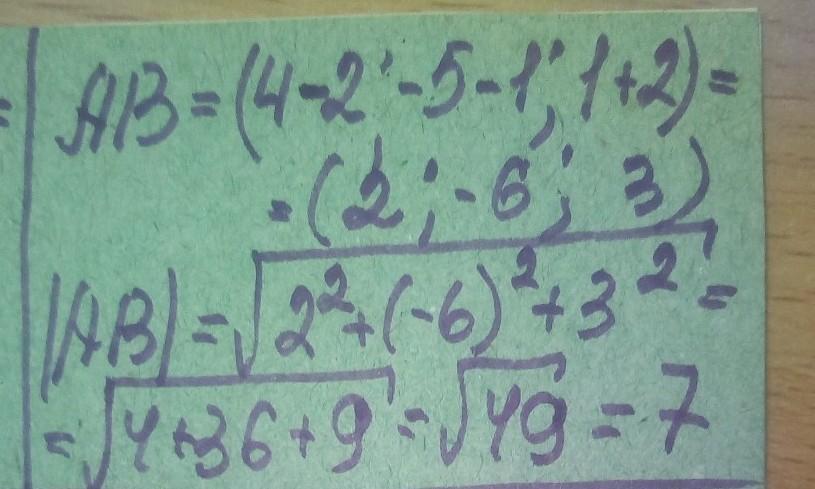 AB = (4-2; -5-1; 1+2) =
= (2; -6; 3)
|AB| = √2²+(-6)²+3² =
= √4+36+9 = √49 = 7